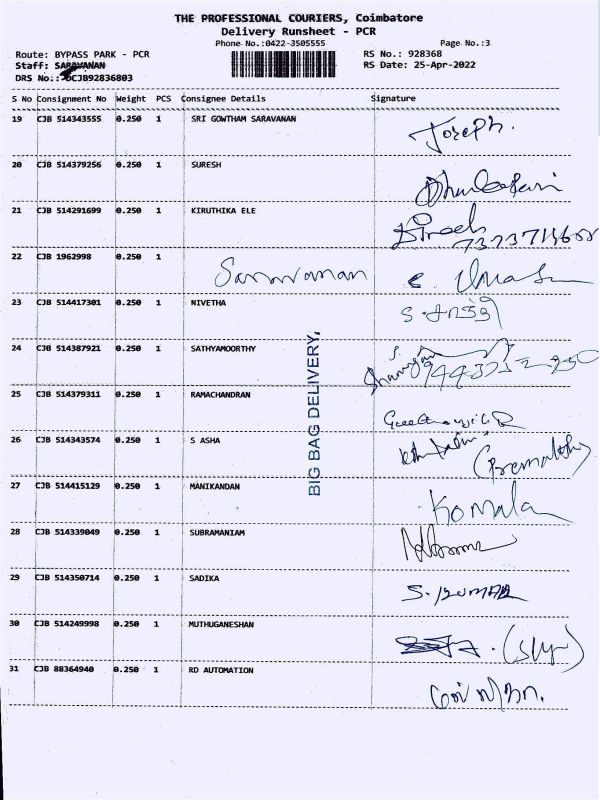 THE PROFESSIONAL COURIERS, Coimbatore
Delivery Runsheet - PCR
Phone No.:0422-3505555
Page No.:3
Route: BYPASS PARK - PCR
RS No.: 928368
Staff: SARAVANAN
RS Date: 25-Apr-2022
DRS No.: CJB92836803
S No Consignment No Weight PCS Consignee Details Signature
19 CJB 514343555 0.250 1 SRI GOWTHAM SARAVANAN Joseph.
20 CJB 514379256 0.250 1 SURESH
21 CJB 514291699 0.250 1 KIRUTHIKA ELE
22 CJB 1962998 0.250 1 Saravanan
23 CJB 514417301 0.250 1 NIVETHA
24 CJB 514387921 0.250 1 SATHYAMOORTHY
25 CJB 514379311 0.250 1 RAMACHANDRAN
26 CJB 514343574 0.250 1 S ASHA
27 CJB 514415129 0.250 1 MANIKANDAN Komala
28 CJB 514339049 0.250 1 SUBRAMANIAM
29 CJB 514350714 0.250 1 SADIKA S.KUMAR
30 CJB 514249998 0.250 1 MUTHUGANESHAN
31 CJB 88364940 0.250 1 RD AUTOMATION
BIG BAG DELIVERY,